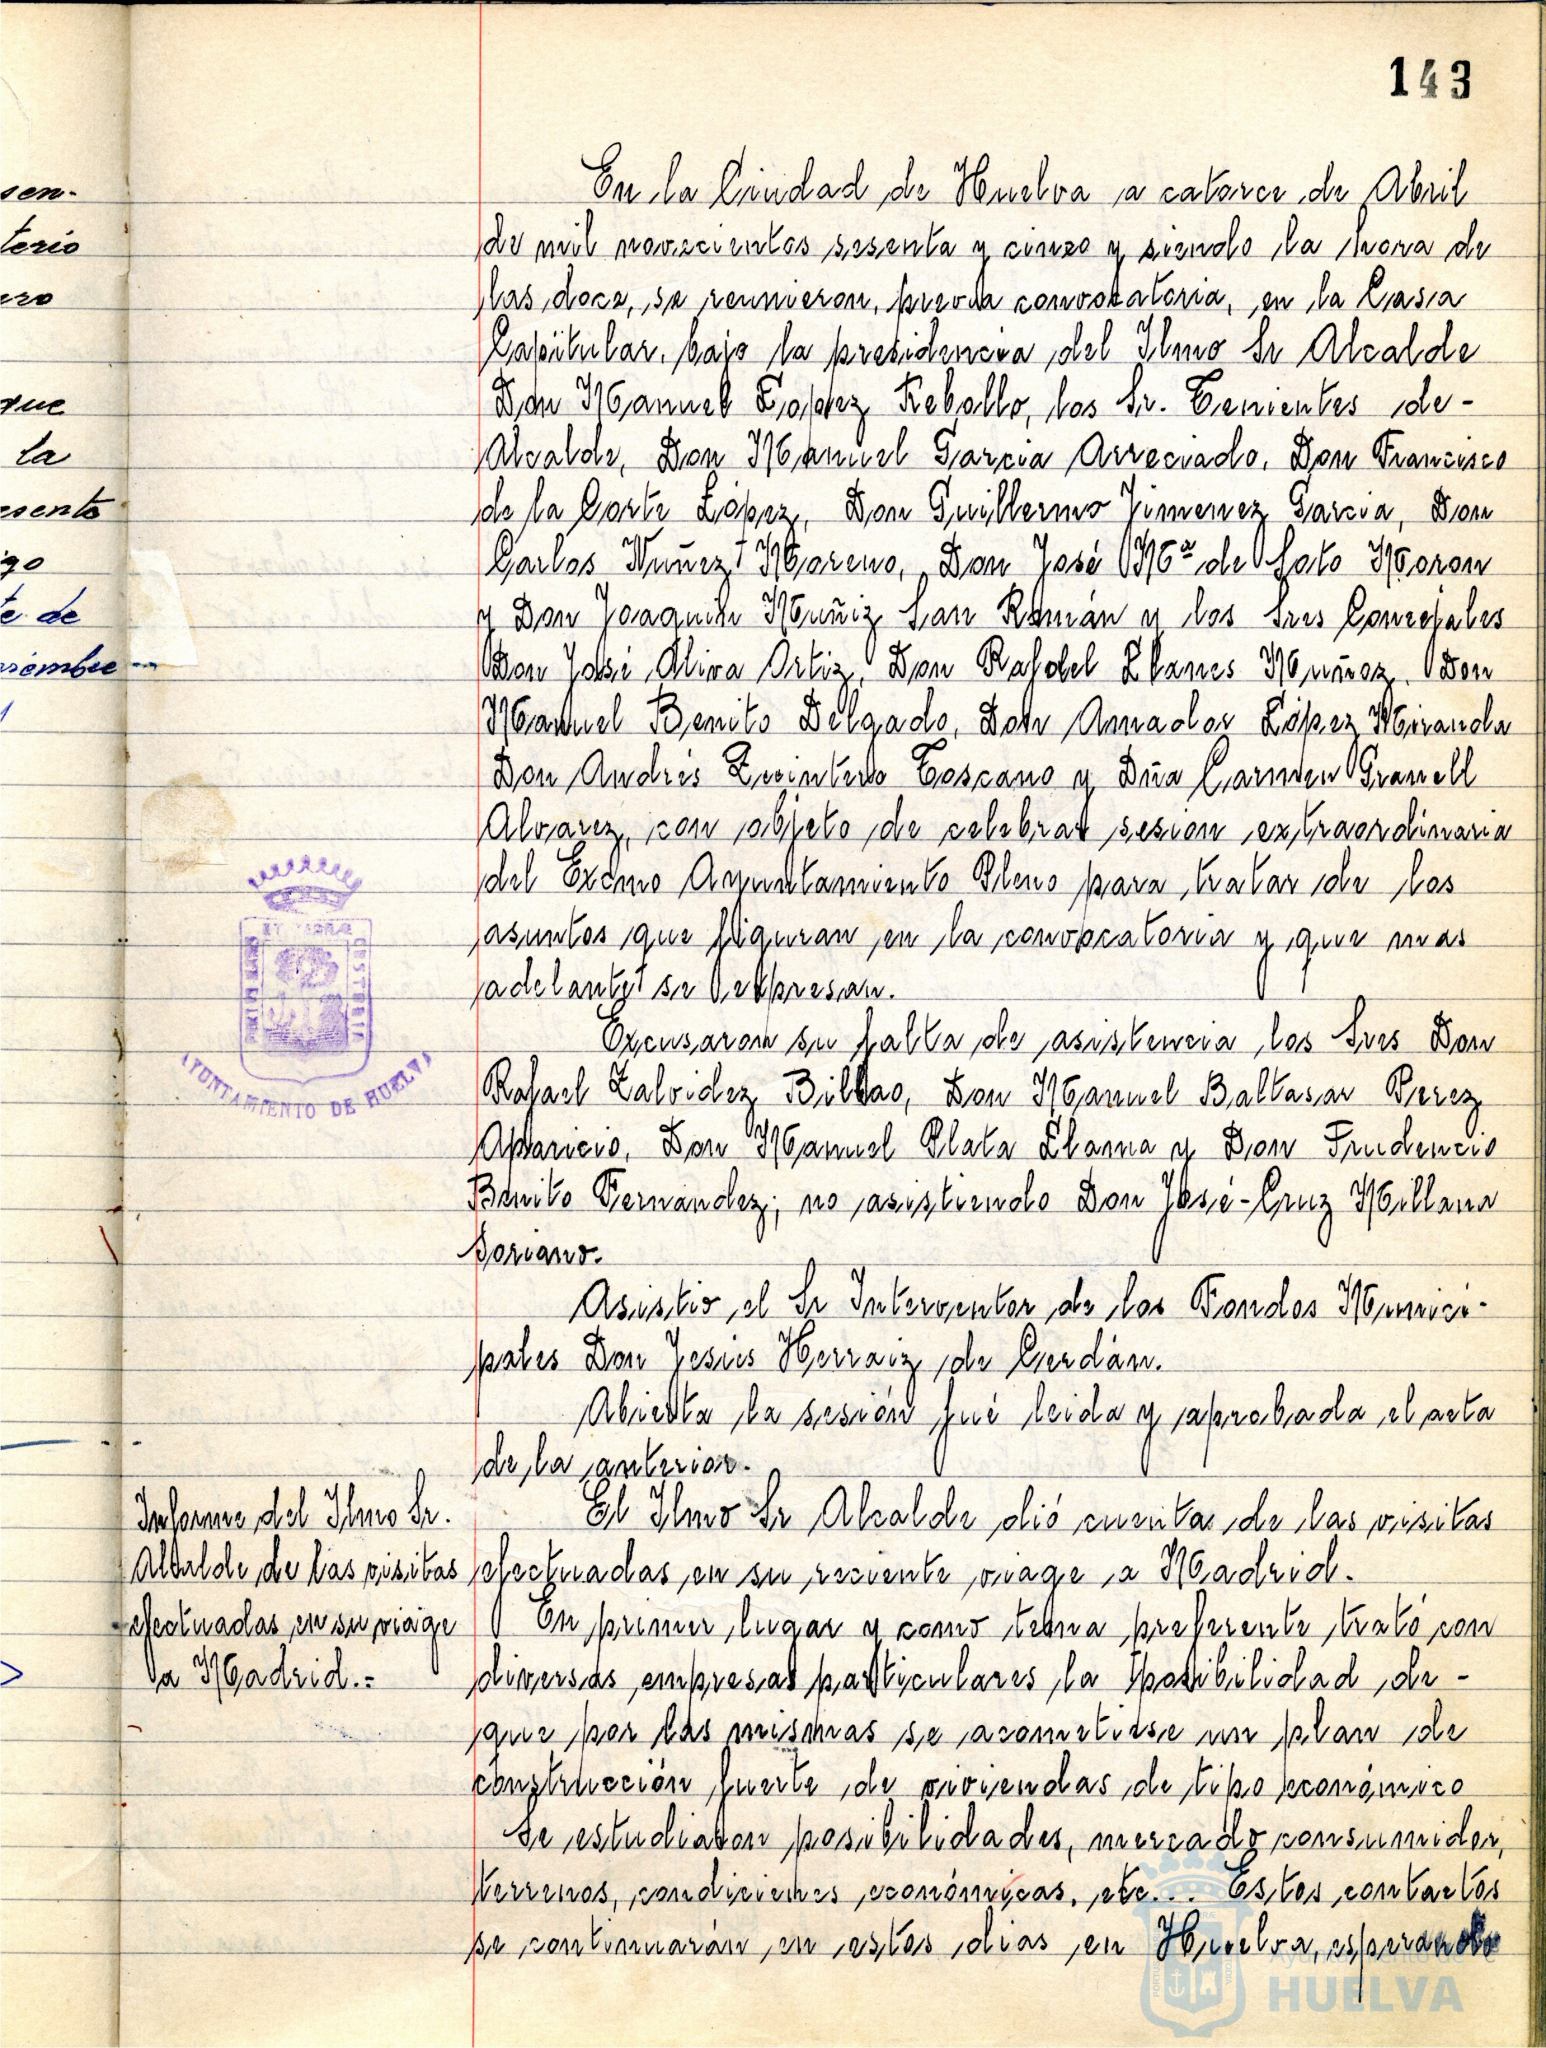 143
sen-
terio
ero
que
la
esento
igo
te de
En la Ciudad de Huelva a catorce de Abril
de mil novecientos sesenta y cinco y siendo la hora de
las doce, se reunieron, previa convocatoria, en la Casa
Capitular, bajo la presidencia del Ilmo Sr Alcalde
Don Manuel López Rebollo, los Sr. Tenientes de-
Alcalde, Don Manuel Garcia Arreciado, Don Francisco
de la Corte López, Don Guillermo Jimenez Garcia, Don
Carlos Nuñez Moreno, Don José Mª de Soto Moron
y Don Joaquin Muñiz San Román y los Sres Concejales
Don José Oliva Ortiz, Don Rafael Llanes Muñoz, Don
Manuel Benito Delgado, Don Amador López Miranda
Don Andrés Quintero Toscano y Dña Carmen Granell
Alvarez, con objeto de celebrar sesion extraordinaria
del Excmo Ayuntamiento Pleno para tratar de los
asuntos que figuran en la convocatoria y que mas
adelante se expresan.
Excusaron su falta de asistencia los Sres Don
Rafael Zalvidez Bilbao, Don Manuel Baltasar Perez
Aparicio, Don Manuel Plata Llama y Don Prudencio
Benito Fernández; no asistiendo Don José-Cruz Millana
Soriano.
Asistió el Sr Interventor de los Fondos Munici-
pales Don Jesús Herraiz de Cerdán.
Abierta la sesión fué leida y aprobada el acta
de la anterior.
El Ilmo Sr Alcalde dió cuenta de las visitas
efectuadas en su reciente viage a Madrid.
En primer lugar y como tema preferente trató con
diversas empresas particulares la posibilidad de-
que por las mismas se acometiese un plan de
construcción fuerte de viviendas de tipo económico
Se estudiaron posibilidades, mercado consumidor,
terrenos, condiciones económicas, etc... Estos contactos
se continuarán en estos dias en Huelva, esperando
Informe del Ilmo Sr.
Alcalde de las visitas
efectuadas en su viage
a Madrid.=
AYUNTAMIENTO DE HUELVA
Ayuntamiento de
HUELVA